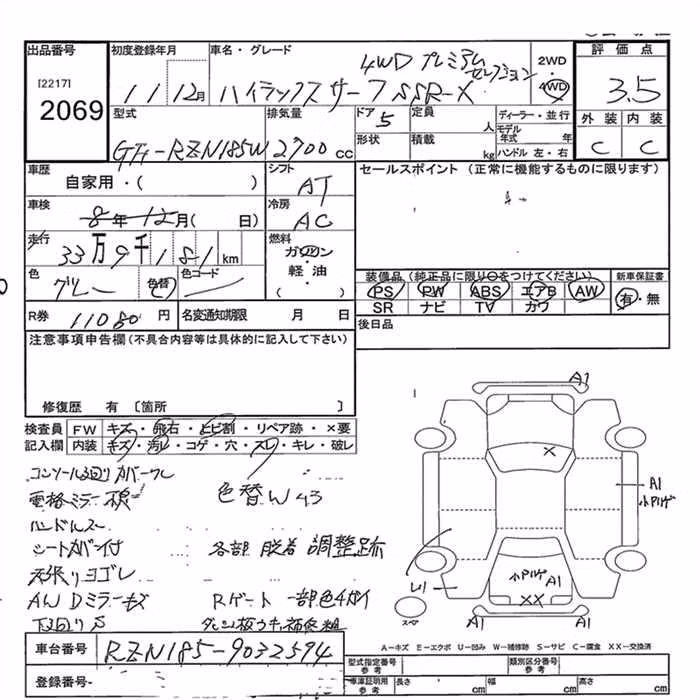 出品番号
[2217]
2069
初度登録年月
11 12月
車名・グレード
4WD プレミアム
セレクション
ハイラックスサーフ SSR-X
2WD
4WD
評価点
3.5
外装 内装
C C
型式
RZN185W
排気量
2700 cc
ドア
5
定員
人
形状
積載
kg
ディーラー・並行
モデル
年式 年
ハンドル 左・右
車歴
自家用・( )
シフト
AT
セールスポイント (正常に機能するものに限ります)
車検
8年12月( 日)
冷房
AC
走行
33万9千181km
燃料
ガソリン
・
軽・油
( )
色
グレー
色替
色コード
装備品(純正品に限り○をつけてください)
PS PW ABS エアB AW
SR ナビ TV カワ
新車保証書
有・無
R券
11080円
名変通知期限 月 日
後日品
注意事項申告欄(不具合内容等は具体的に記入して下さい)
修復歴 有 〔箇所 〕
検査員
記入欄
FW キズ・飛石・ヒビ割・リペア跡・×要
内装 キズ・汚レ・コゲ・穴・スレ・キレ・破レ
電格ミラー
色替W43
ハンドルスレ
シートカバー付
各部 脱着 調整跡
天張りヨゴレ
AW Dミラーキズ
Rゲート 一部色
A1
A1
小パリゲ
小パリゲ A1
XX
U1
スペア
A1
A1
車台番号
RZN185-9032594
登録番号
A-キズ E-エクボ U-凹み W-補修跡 S-サビ C-腐食 XX-交換済
型式指定番号
参考
類別区分番号
参考
車庫証明用
参考
長さ cm
幅 cm
高さ cm